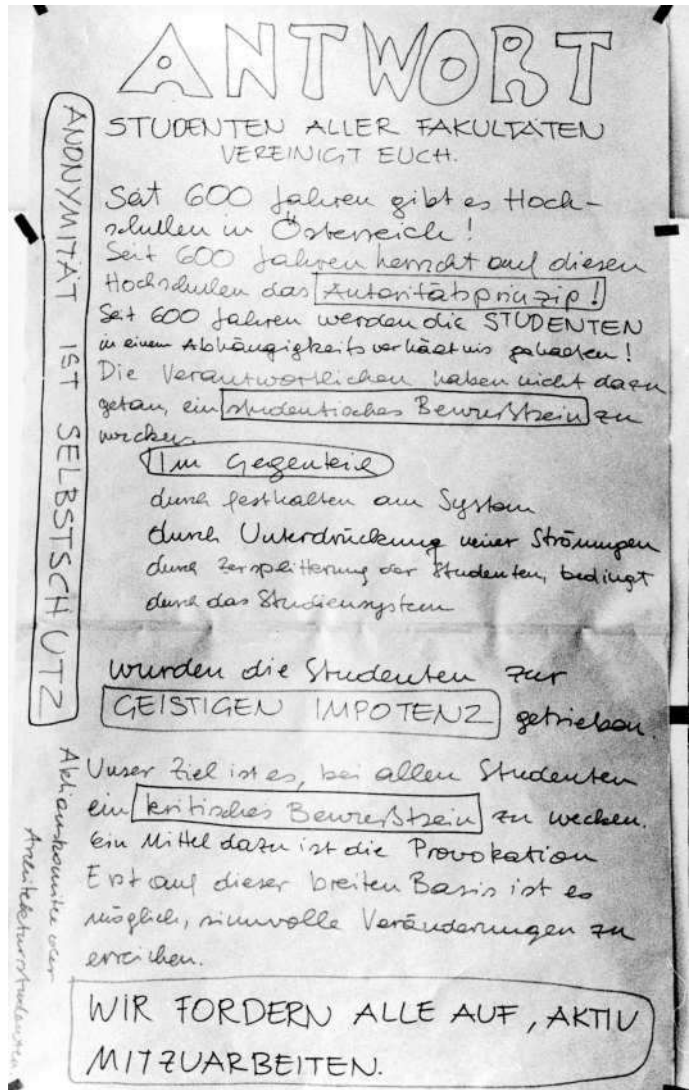 ANTWORT
STUDENTEN ALLER FAKULTÄTEN
VEREINIGT EUCH.
Seit 600 Jahren gibt es Hoch-
schulen in Österreich!
Seit 600 Jahren herrscht auf diesen
Hochschulen das Autoritätsprinzip!
Seit 600 Jahren werden die STUDENTEN
in einem Abhängigkeitsverhältnis gehalten!
Die Verantwortlichen haben nicht dazu
getan, ein studentisches Bewußtsein zu
wecken.
Im Gegenteil
durch festhalten am System
durch Unterdrückung neuer Strömungen
durch Zersplitterung der Studenten, bedingt
durch das Studiensystem
wurden die Studenten zur
GEISTIGEN IMPOTENZ getrieben.
Unser Ziel ist es, bei allen Studenten
ein kritisches Bewußtsein zu wecken.
Ein Mittel dazu ist die Provokation
Erst auf dieser breiten Basis ist es
möglich, sinnvolle Veränderungen zu
erreichen.
WIR FORDERN ALLE AUF, AKTIV
MITZUARBEITEN.
ANONYMITÄT IST SELBSTSCHUTZ
Aktionskomitee der
Architekturstudenten.